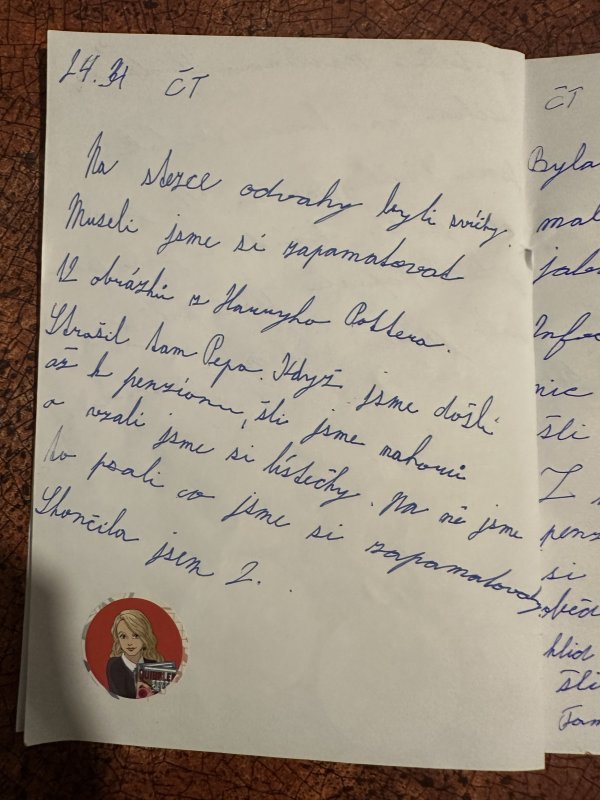 24. ČT
Na stezce odvahy byli svíčky.
Museli jsme si zapamatovat
12 obrázků z Harryho Pottera.
Strašil tam Pepa. Když jsme došli
až k penzionu, šli jsme nahoru
a vzali jsme si lístečky. Na ně jsme
to psali co jsme si zapamatovaly.
Skončila jsem 2.
QUIBBLER
ČT
Byla
nic
šli
si
oběd
hlíd
šli